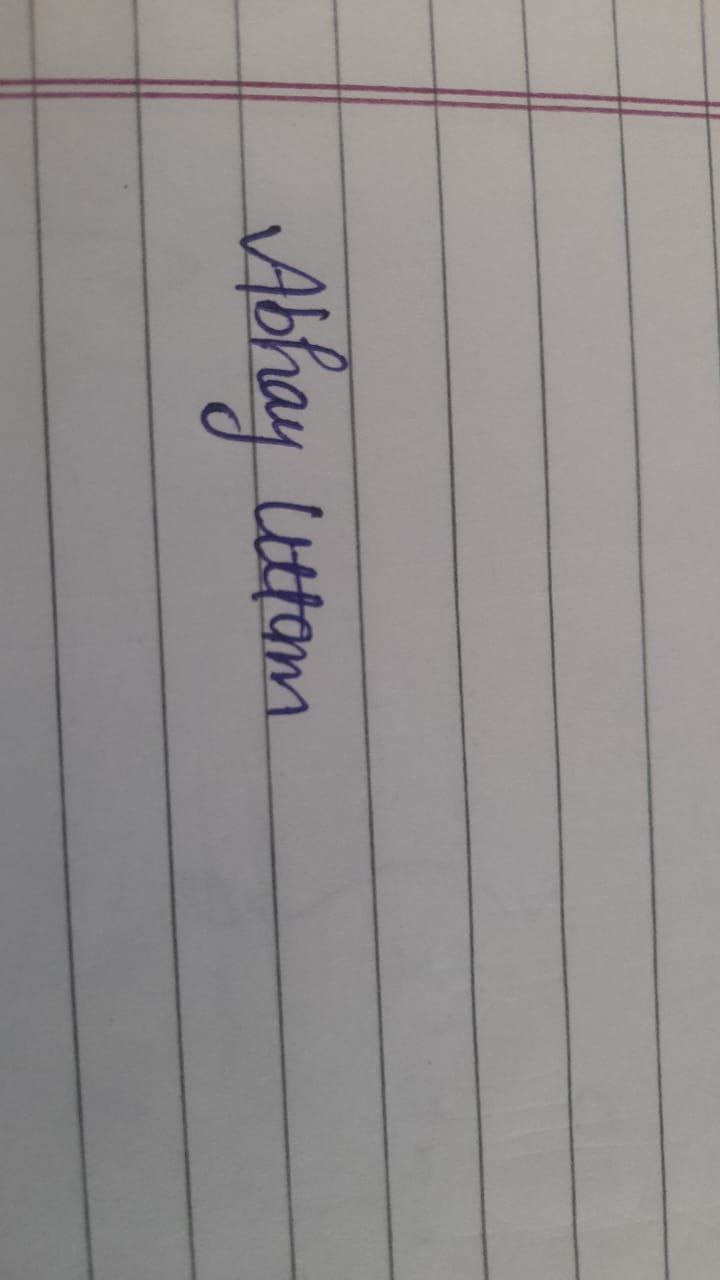 Abhay Uttam